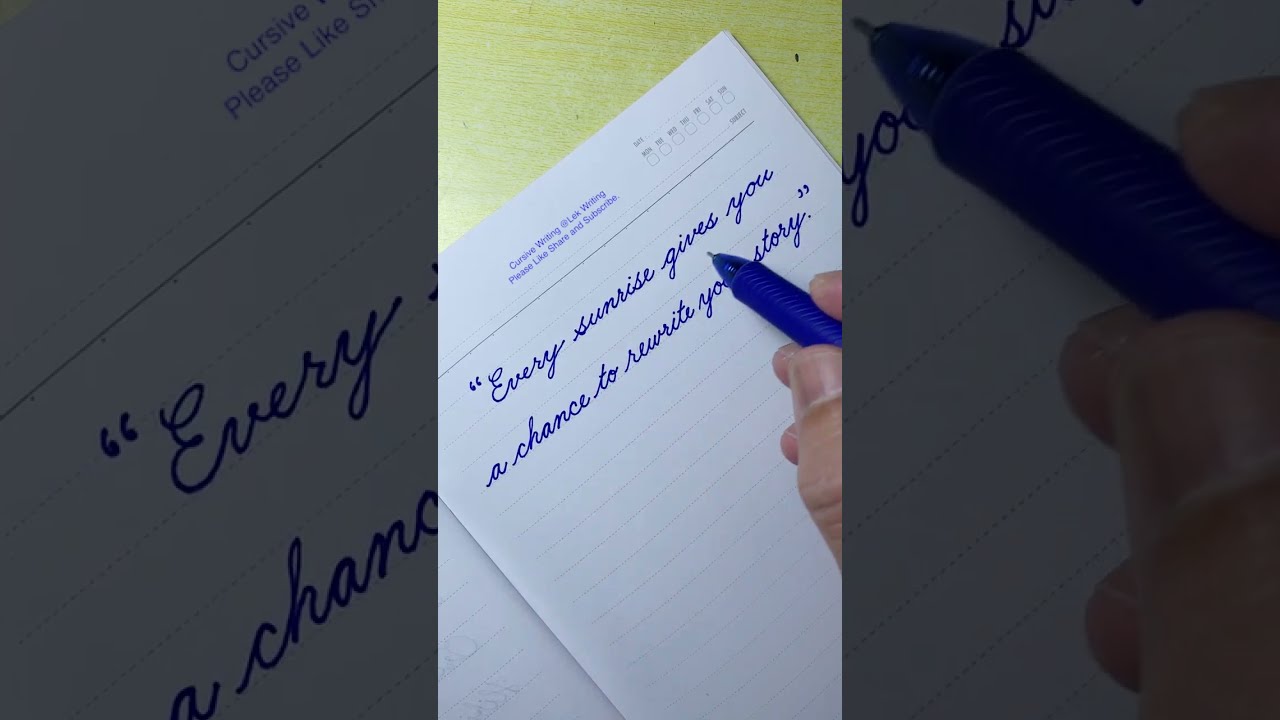 DATE
MON TUE WED THU FRI SAT SUN
SUBJECT
Cursive Writing @Lek Writing
Please Like Share and Subscribe.
“Every sunrise gives you
a chance to rewrite your story.”